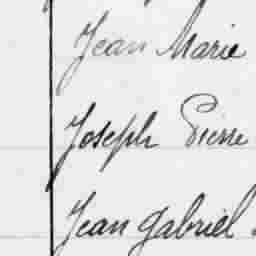 Jean Marie
Joseph Pierre
Jean Gabriel